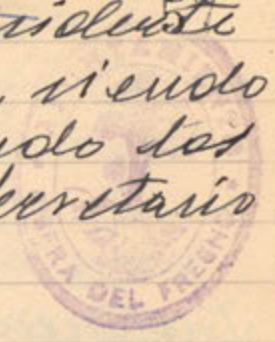 sidente
, siendo
ndo los
Secretario
RA DEL FRESNE